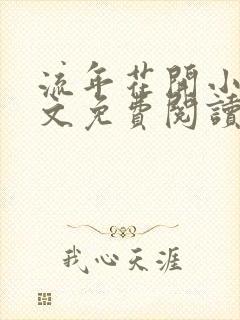 流年花開小
文免費閱讀
我心天涯